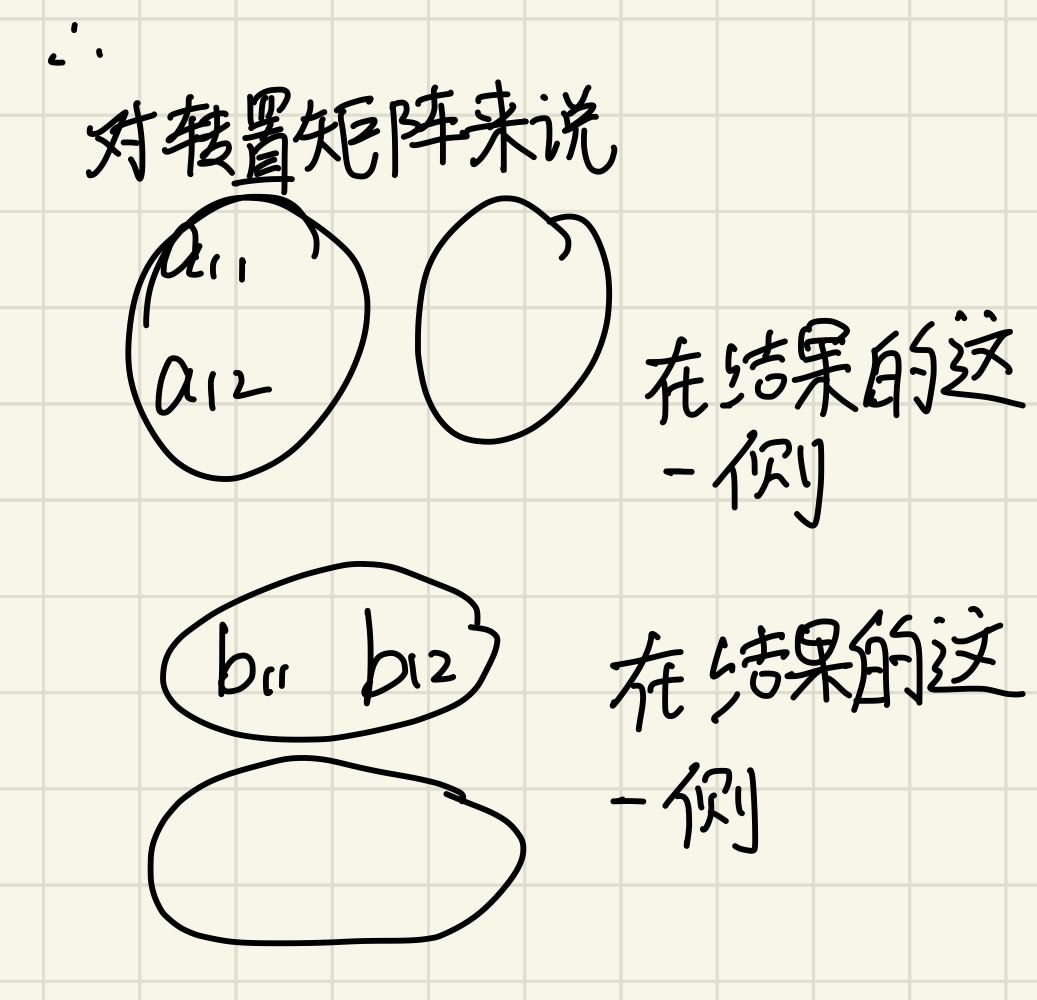 ∴
对转置矩阵来说
a₁₁
a₁₂
在结果的这
一侧
b₁₁ b₁₂
在结果的这
一侧